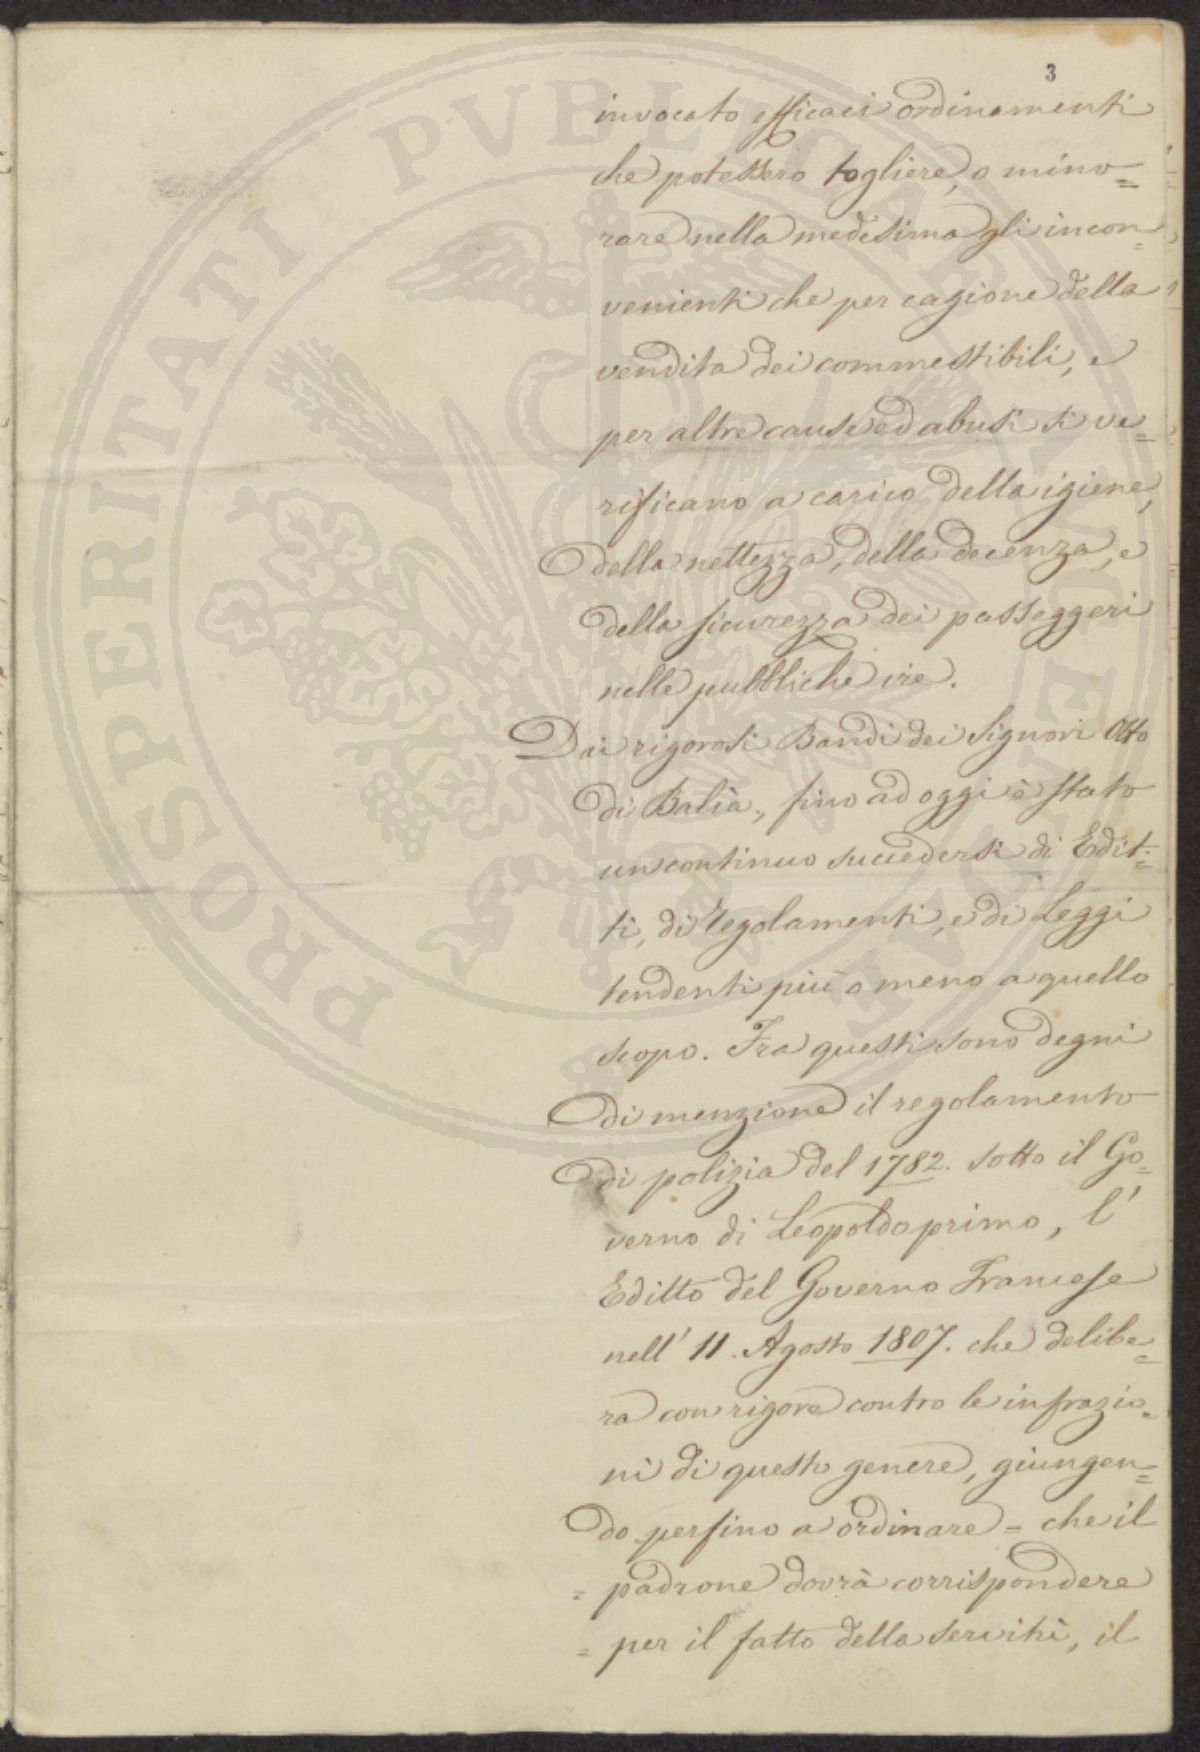 3
invocato efficaci ordinamenti
che potessero togliere, o mino=
rare nella medesima gli incon=
venienti che per cagione della
vendita dei commestibili, e
per altre cause ed abusi si ve=
rificano a carico della igiene,
della nettezza, della decenza, e
della sicurezza dei passeggeri
nelle pubbliche vie.
Dai rigorosi Bandi dei Signori Otto
di Balìa, fino ad oggi è stato
un continuo succedersi di Edit=
ti, di regolamenti, e di Leggi
tendenti più o meno a quello
scopo. Fra questi sono degni
di menzione il regolamento
di polizia del 1782. sotto il Go=
verno di Leopoldo primo, l'
Editto del Governo Francese
nell' 11. Agosto 1807. che delibe=
ra con rigore contro le infrazio=
ni di questo genere, giungen=
do perfino a ordinare = che il
= padrone dovrà corrispondere
= per il fatto della servitù, il
PROSPERITATI PUBLICAE AUGENDAE